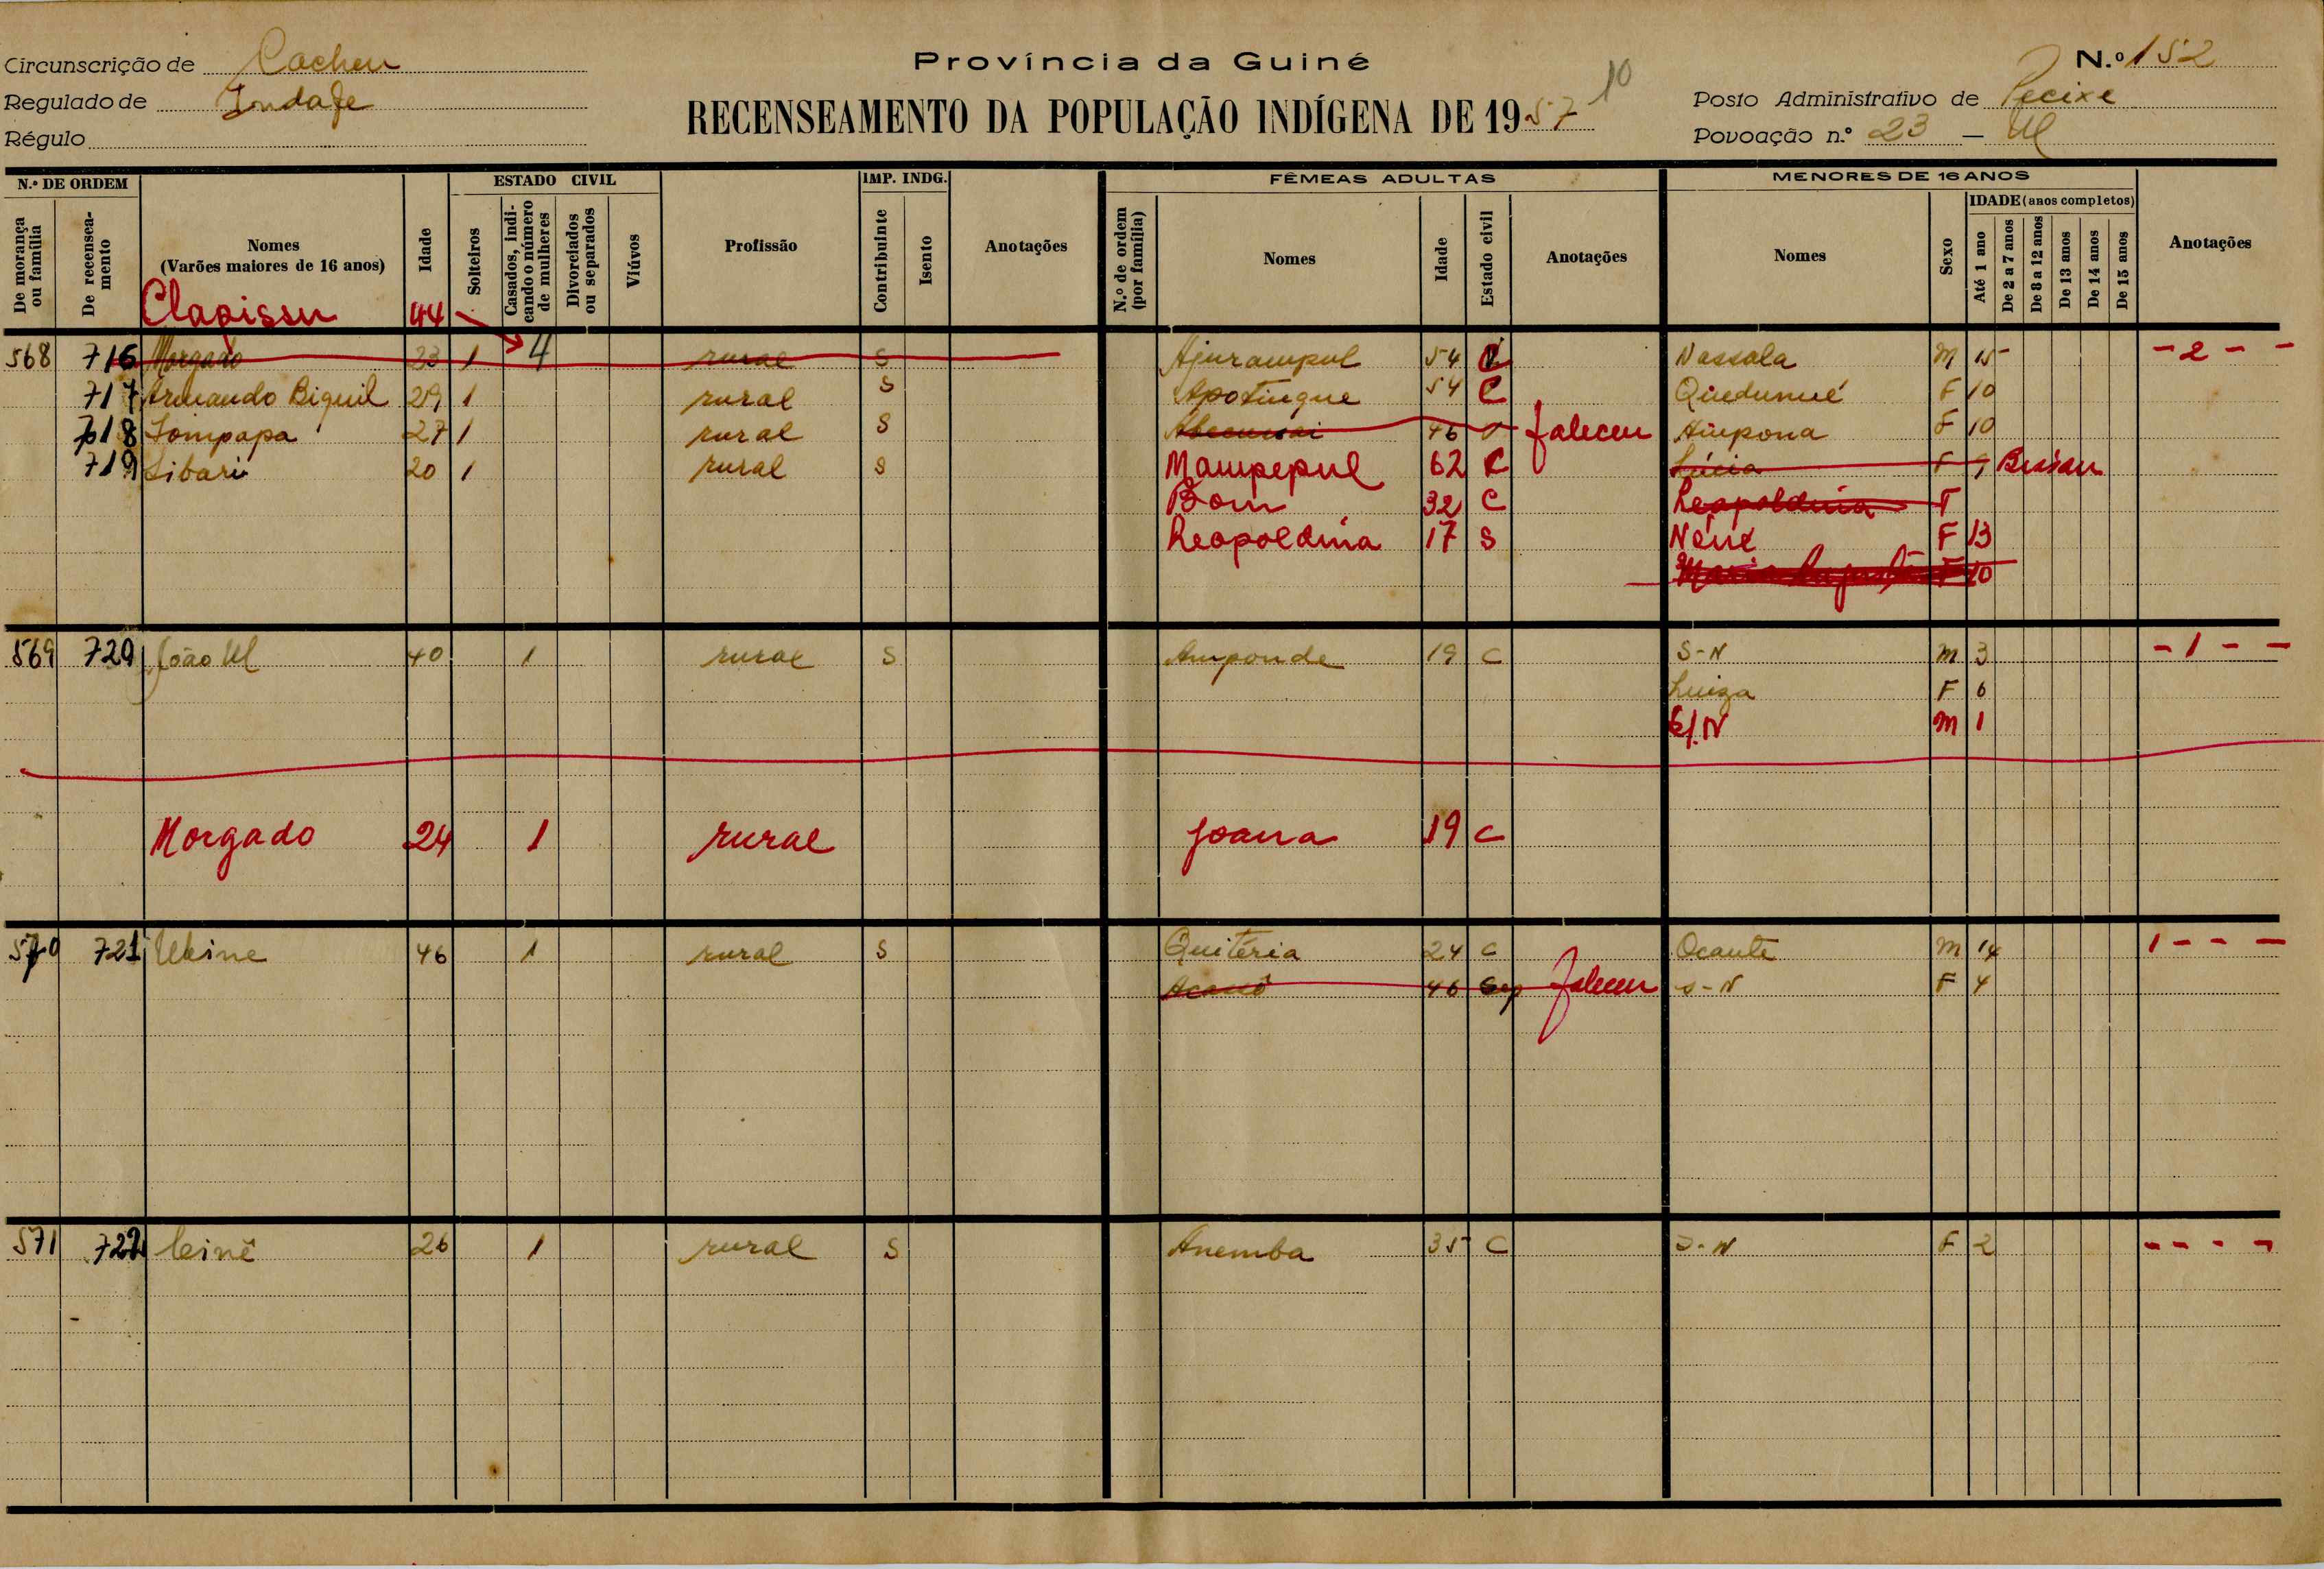 Província da Guiné
RECENSEAMENTO DA POPULAÇÃO INDÍGENA DE 1957
10
Circunscrição de Cacheu
Regulado de
Régulo
N.º 152
Posto Administrativo de Pecixe
Povoação n.º 23 — Ul
N.º DE ORDEM
De morança ou família
De recenseamento
Nomes
(Varões maiores de 16 anos)
Idade
ESTADO CIVIL
Solteiros
Casados, indicando o número de mulheres
Divorciados ou separados
Viúvos
Profissão
IMP. INDG.
Contribuinte
Isento
Anotações
FÊMEAS ADULTAS
N.º de ordem (por família)
Nomes
Idade
Estado civil
Anotações
MENORES DE 16 ANOS
Nomes
Sexo
IDADE (anos completos)
Até 1 ano
De 2 a 7 anos
De 8 a 12 anos
De 13 anos
De 14 anos
De 15 anos
Anotações
Clapissu 44
568 716 Morgado 23 1 4 rural S Ajurampul 54 C Nassala M 15 - 2 - -
717 Armando Biquil 29 1 rural S Apotingue 54 C Quedumué F 10
718 Tompapa 27 1 rural S 46 faleceu Aimpona F 10
719 Libari 20 1 rural S Mampepul 62 C Lúcia F 9 Bissau
Bom 32 C Leopoldina F
Leopoldina 17 S Néné F 13
Maria F 10
569 720 João Ul 40 1 rural S Amponde 19 C S-N M 3 - 1 - -
Luiza F 6
S/.N M 1
Morgado 24 1 rural Joana 19 C
570 721 Ukine 46 1 rural S Quitéria 24 C Ocante M 14 1 - - -
46 Sep faleceu S-N F 4
571 722 26 1 rural S Anemba 35 C S-N F 2 - - - -